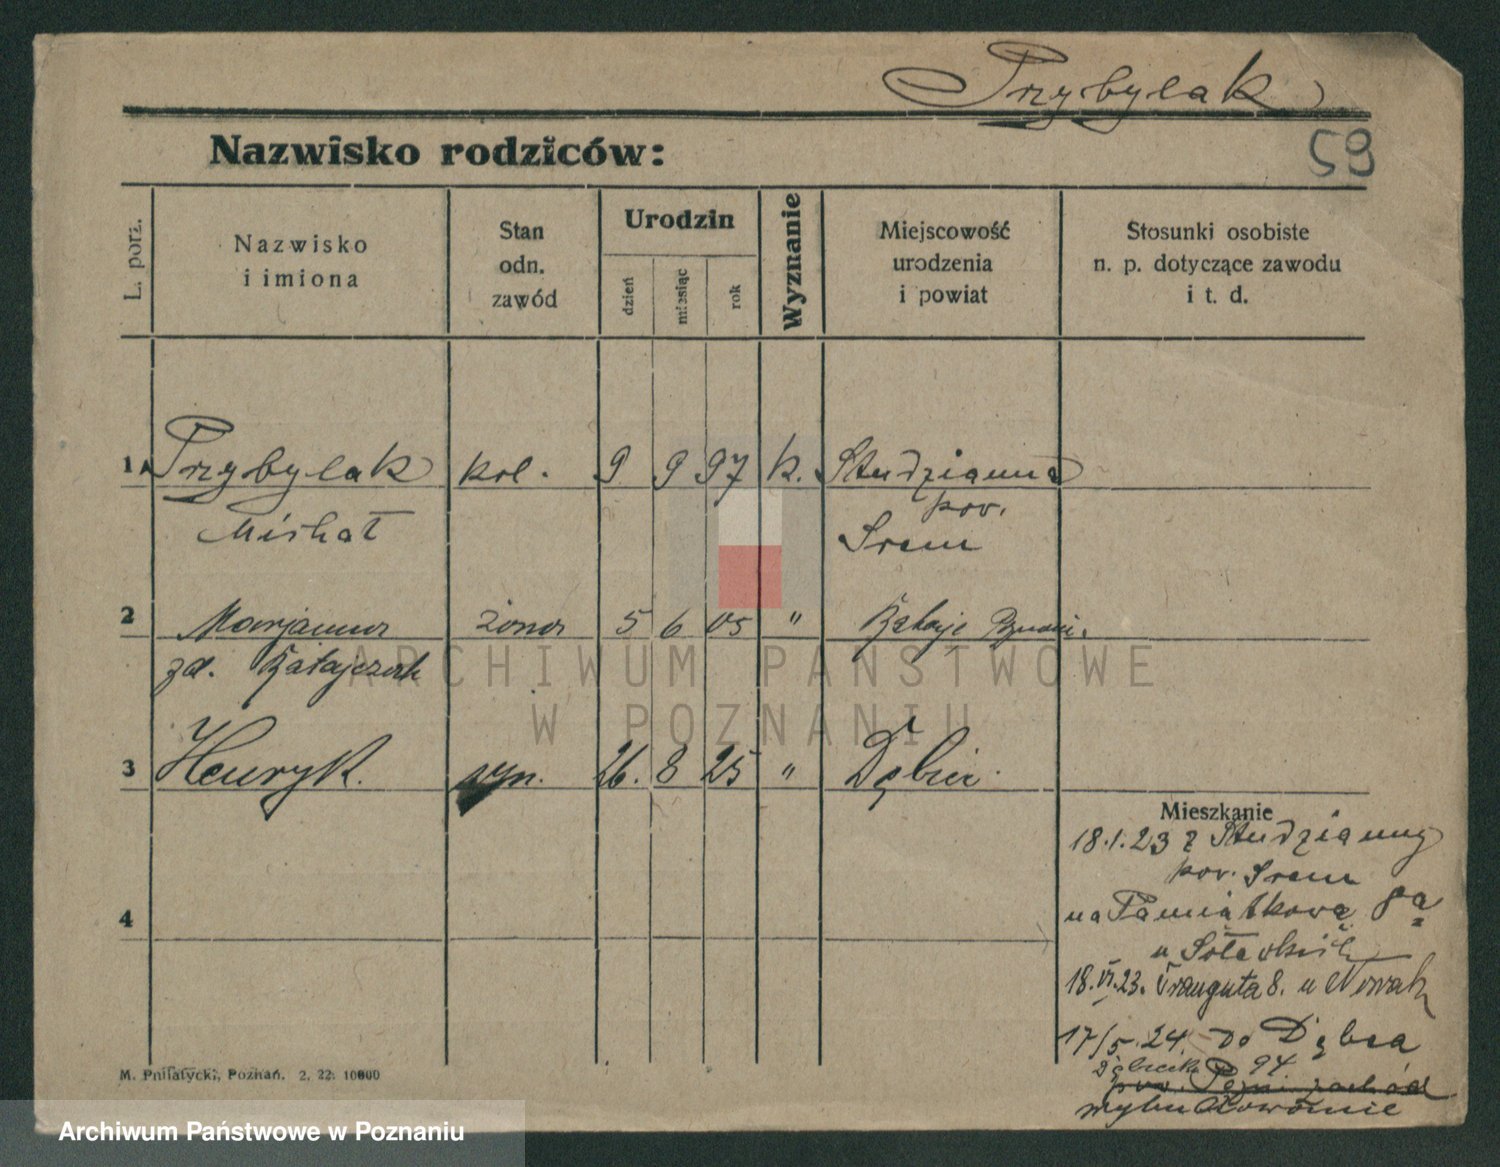 Przybylak
Nazwisko rodziców:
59
L. porz.
Nazwisko
i imiona
Stan
odn.
zawód
Urodzin
dzień
miesiąc
rok
Wyznanie
Miejscowość
urodzenia
i powiat
Stosunki osobiste
n. p. dotyczące zawodu
i t. d.
1 Przybylak kol. 9 9 97 k. Studzianna
pow.
Michał Srem
2 Marjanna żona 5 6 05 "
zd. Ratajczak
3 Henryk. syn. 26. 8 25 " Dębiec.
Mieszkanie
18.1.23 z Studzianny
pow. Srem
4
na Pamiątkową 8a
u
18.VI.23. Trauguta 8. u Nowak
17/5.24 do Dębca
94
M. Pniłatycki, Poznań. 2. 22. 10000
ARCHIWUM PAŃSTWOWE
W POZNANIU
Archiwum Państwowe w Poznaniu